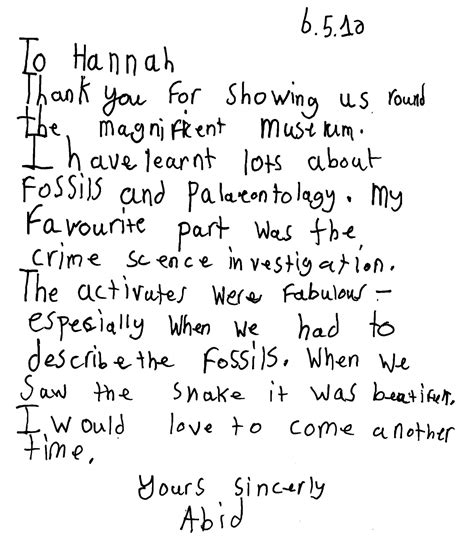 6.5.10
To Hannah
Thank you for showing us round
the magnificent museum.
I have learnt lots about
Fossils and Palaeontology. My
favourite part was the
crime science investigation.
The activates were fabulous -
especially when we had to
describe the Fossils. When we
saw the snake it was
I would love to come another
time.
Yours sincerly
Abid